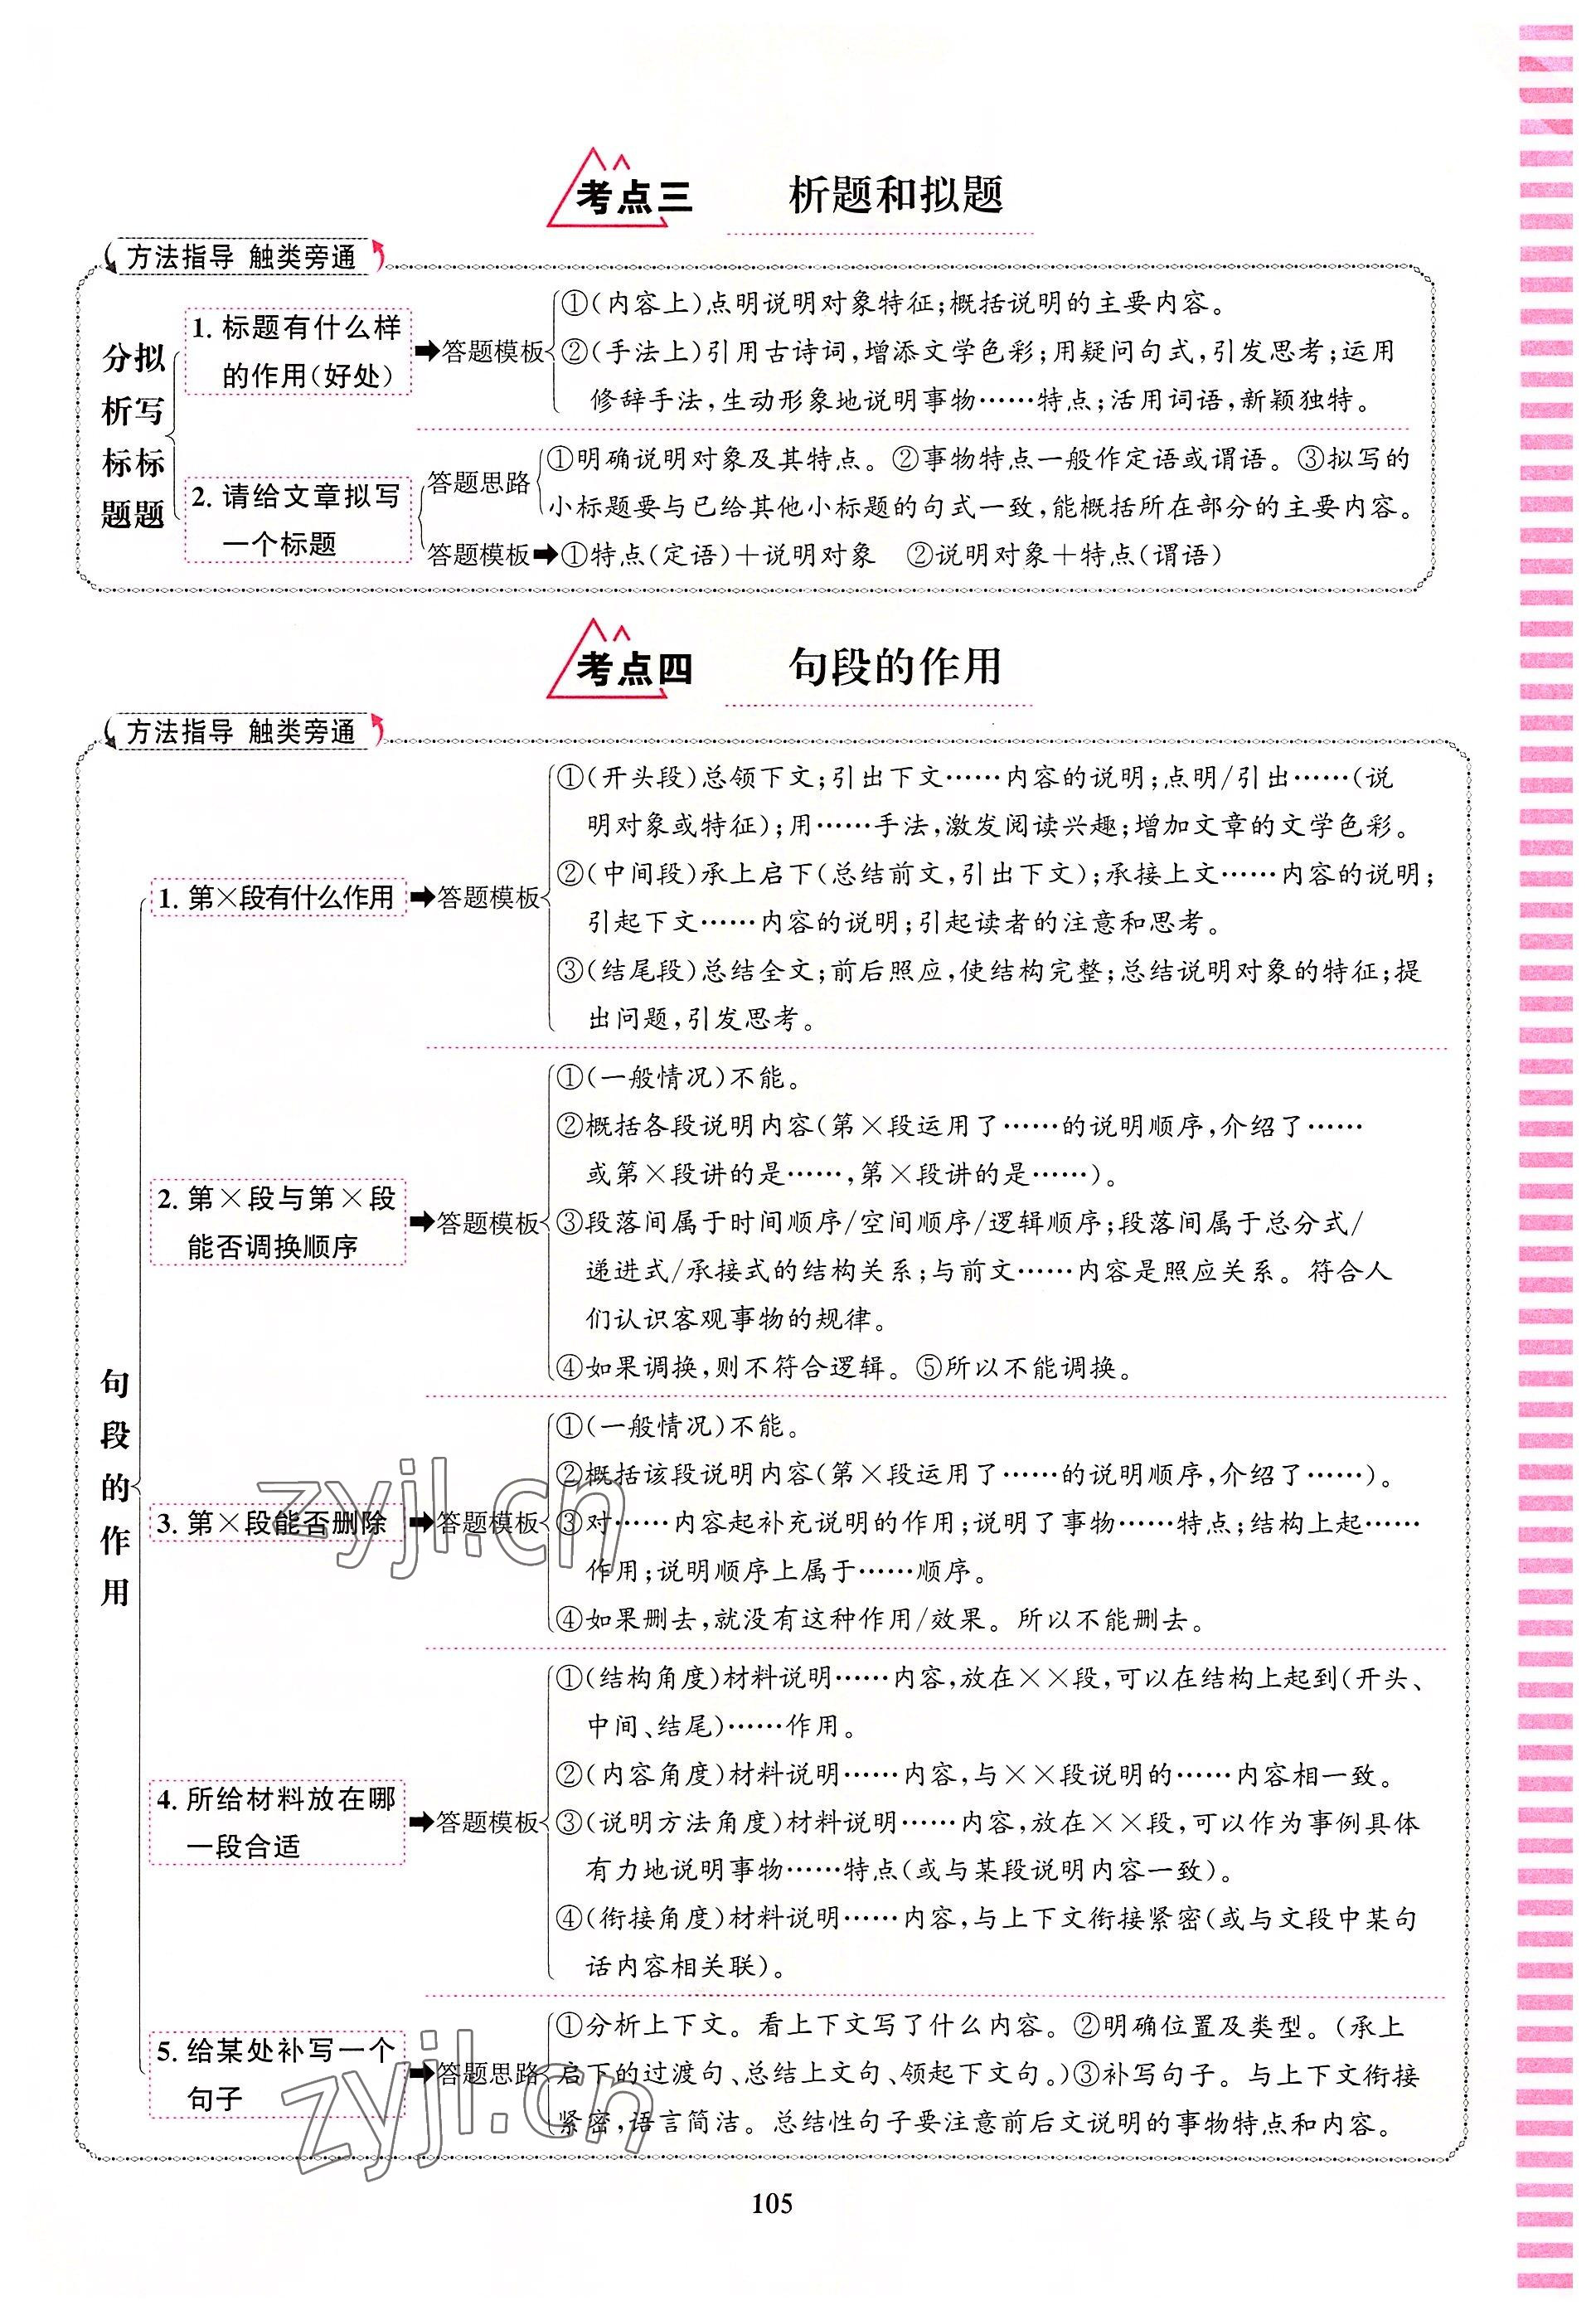 考点三 析题和拟题
方法指导 触类旁通
分析标题 拟写标题
1. 标题有什么样
的作用(好处)
➡答题模板
①(内容上)点明说明对象特征;概括说明的主要内容。
②(手法上)引用古诗词,增添文学色彩;用疑问句式,引发思考;运用
修辞手法,生动形象地说明事物……特点;活用词语,新颖独特。
2. 请给文章拟写
一个标题
答题思路
①明确说明对象及其特点。②事物特点一般作定语或谓语。③拟写的
小标题要与已给其他小标题的句式一致,能概括所在部分的主要内容。
答题模板➡①特点(定语)+说明对象 ②说明对象+特点(谓语)
考点四 句段的作用
方法指导 触类旁通
句段的作用
1. 第×段有什么作用
➡答题模板
①(开头段)总领下文;引出下文……内容的说明;点明/引出……(说
明对象或特征);用……手法,激发阅读兴趣;增加文章的文学色彩。
②(中间段)承上启下(总结前文,引出下文);承接上文……内容的说明;
引起下文……内容的说明;引起读者的注意和思考。
③(结尾段)总结全文;前后照应,使结构完整;总结说明对象的特征;提
出问题,引发思考。
2. 第×段与第×段
能否调换顺序
➡答题模板
①(一般情况)不能。
②概括各段说明内容(第×段运用了……的说明顺序,介绍了……
或第×段讲的是……,第×段讲的是……)。
③段落间属于时间顺序/空间顺序/逻辑顺序;段落间属于总分式/
递进式/承接式的结构关系;与前文……内容是照应关系。符合人
们认识客观事物的规律。
④如果调换,则不符合逻辑。⑤所以不能调换。
3. 第×段能否删除
➡答题模板
①(一般情况)不能。
②概括该段说明内容(第×段运用了……的说明顺序,介绍了……)。
③对……内容起补充说明的作用;说明了事物……特点;结构上起……
作用;说明顺序上属于……顺序。
④如果删去,就没有这种作用/效果。所以不能删去。
zyjl.cn
4. 所给材料放在哪
一段合适
➡答题模板
①(结构角度)材料说明……内容,放在××段,可以在结构上起到(开头、
中间、结尾)……作用。
②(内容角度)材料说明……内容,与××段说明的……内容相一致。
③(说明方法角度)材料说明……内容,放在××段,可以作为事例具体
有力地说明事物……特点(或与某段说明内容一致)。
④(衔接角度)材料说明……内容,与上下文衔接紧密(或与文段中某句
话内容相关联)。
5. 给某处补写一个
句子
➡答题思路
①分析上下文。看上下文写了什么内容。②明确位置及类型。(承上
启下的过渡句、总结上文句、领起下文句。)③补写句子。与上下文衔接
紧密,语言简洁。总结性句子要注意前后文说明的事物特点和内容。
zyjl.cn
105